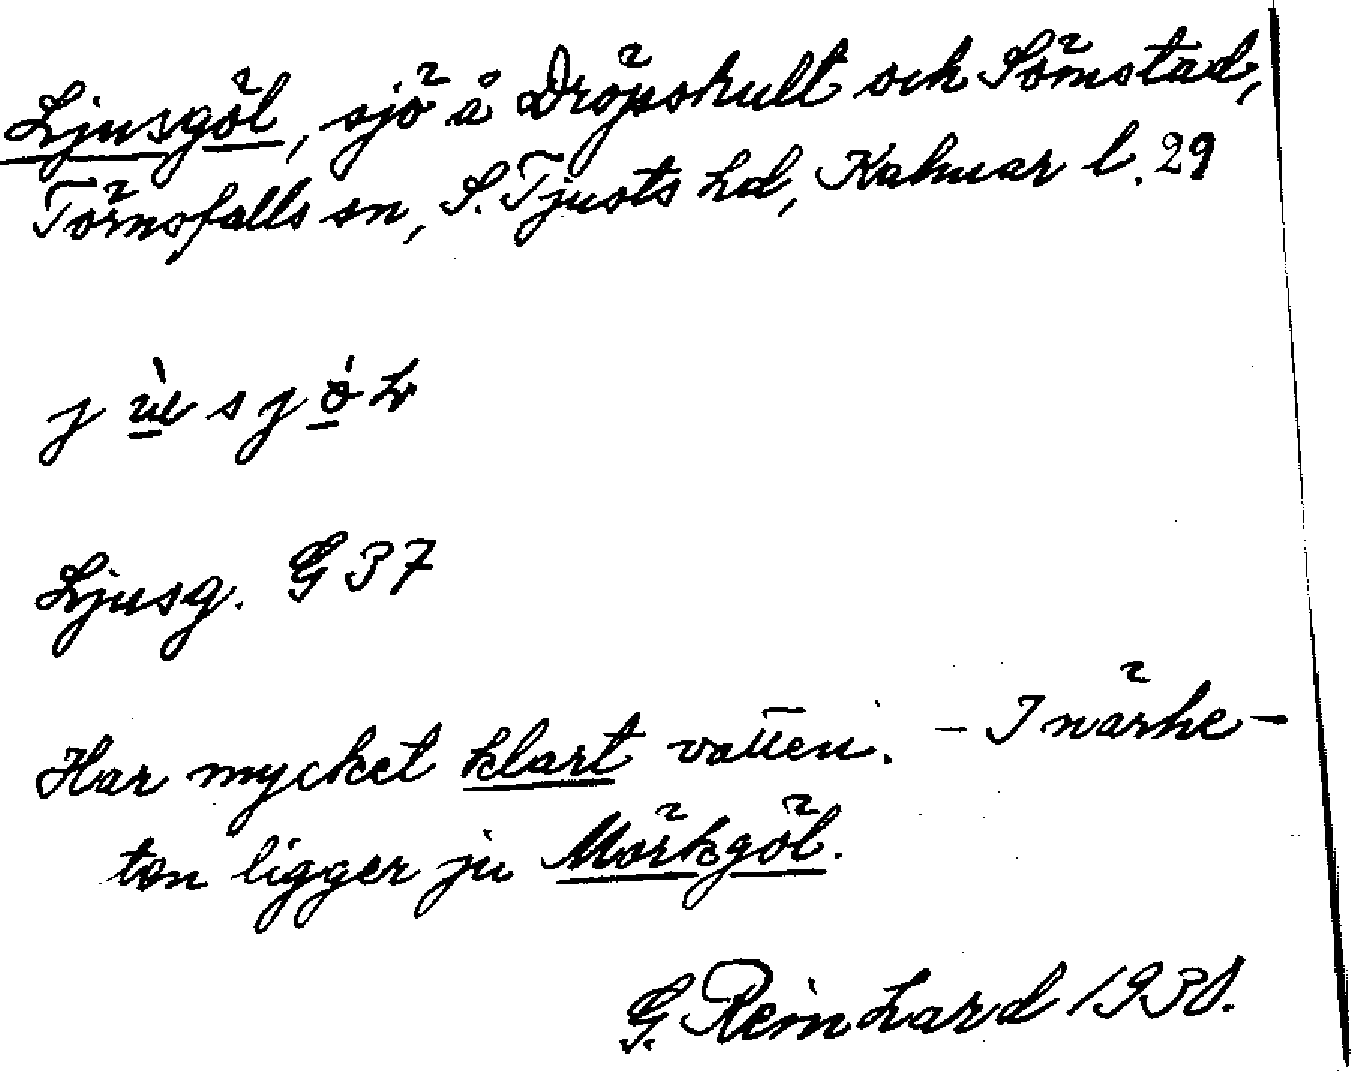 Ljusgöl, sjö å Dröpshult och Sömstad,
Törnsfalls sn, S. Tjusts hd, Kalmar l. 29
Ljusg. G 37
Har mycket klart vatten. – I närhe-
ten ligger ju Mörkgöl.
G. Reinhard 1938.